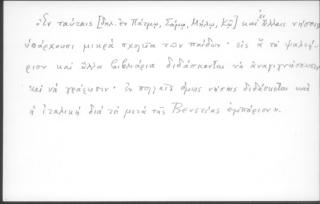 «Ἐν ταύταις [δηλ. ἐν Πάτμῳ, Σάμῳ, Μήλῳ, Κῷ] καὶ ἐν ἄλλαις νήσοις
ὑπάρχουσι μικρὰ σχολεῖα τῶν παίδων· εἰς ἃ τὸ ψαλτή-
ριον καὶ ἄλλα βιβλιάρια διδάσκονται νὰ ἀναγιγνώσκουν
καὶ νὰ γράφουσιν. Ἐν πολλαῖς ὅμως νήσοις διδάσκεται καὶ
ἡ ἰταλικὴ διὰ τὸ μετὰ τῆς Βενετίας ἐμπόριον».